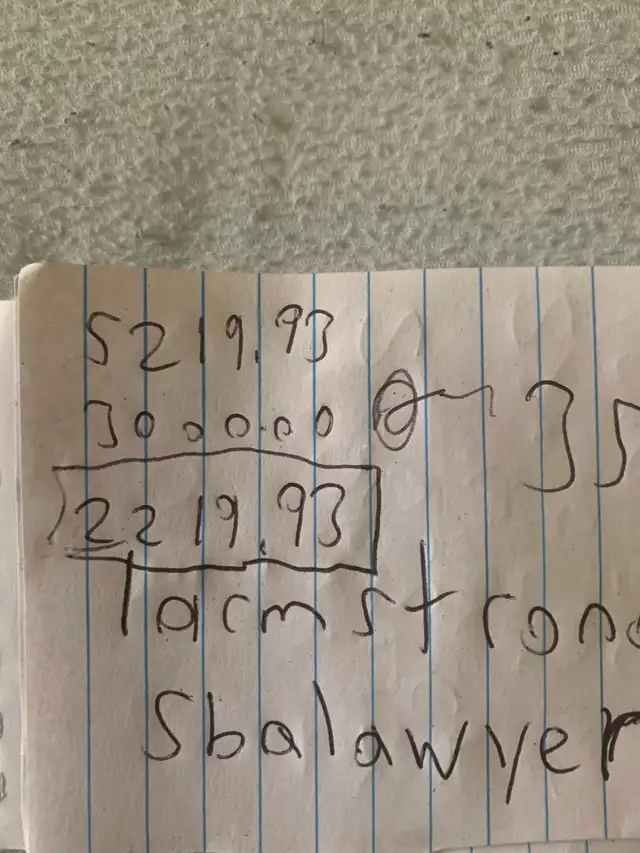 5219.93
3000.00 35
2219.93
lacmstrong
Sbalawyer